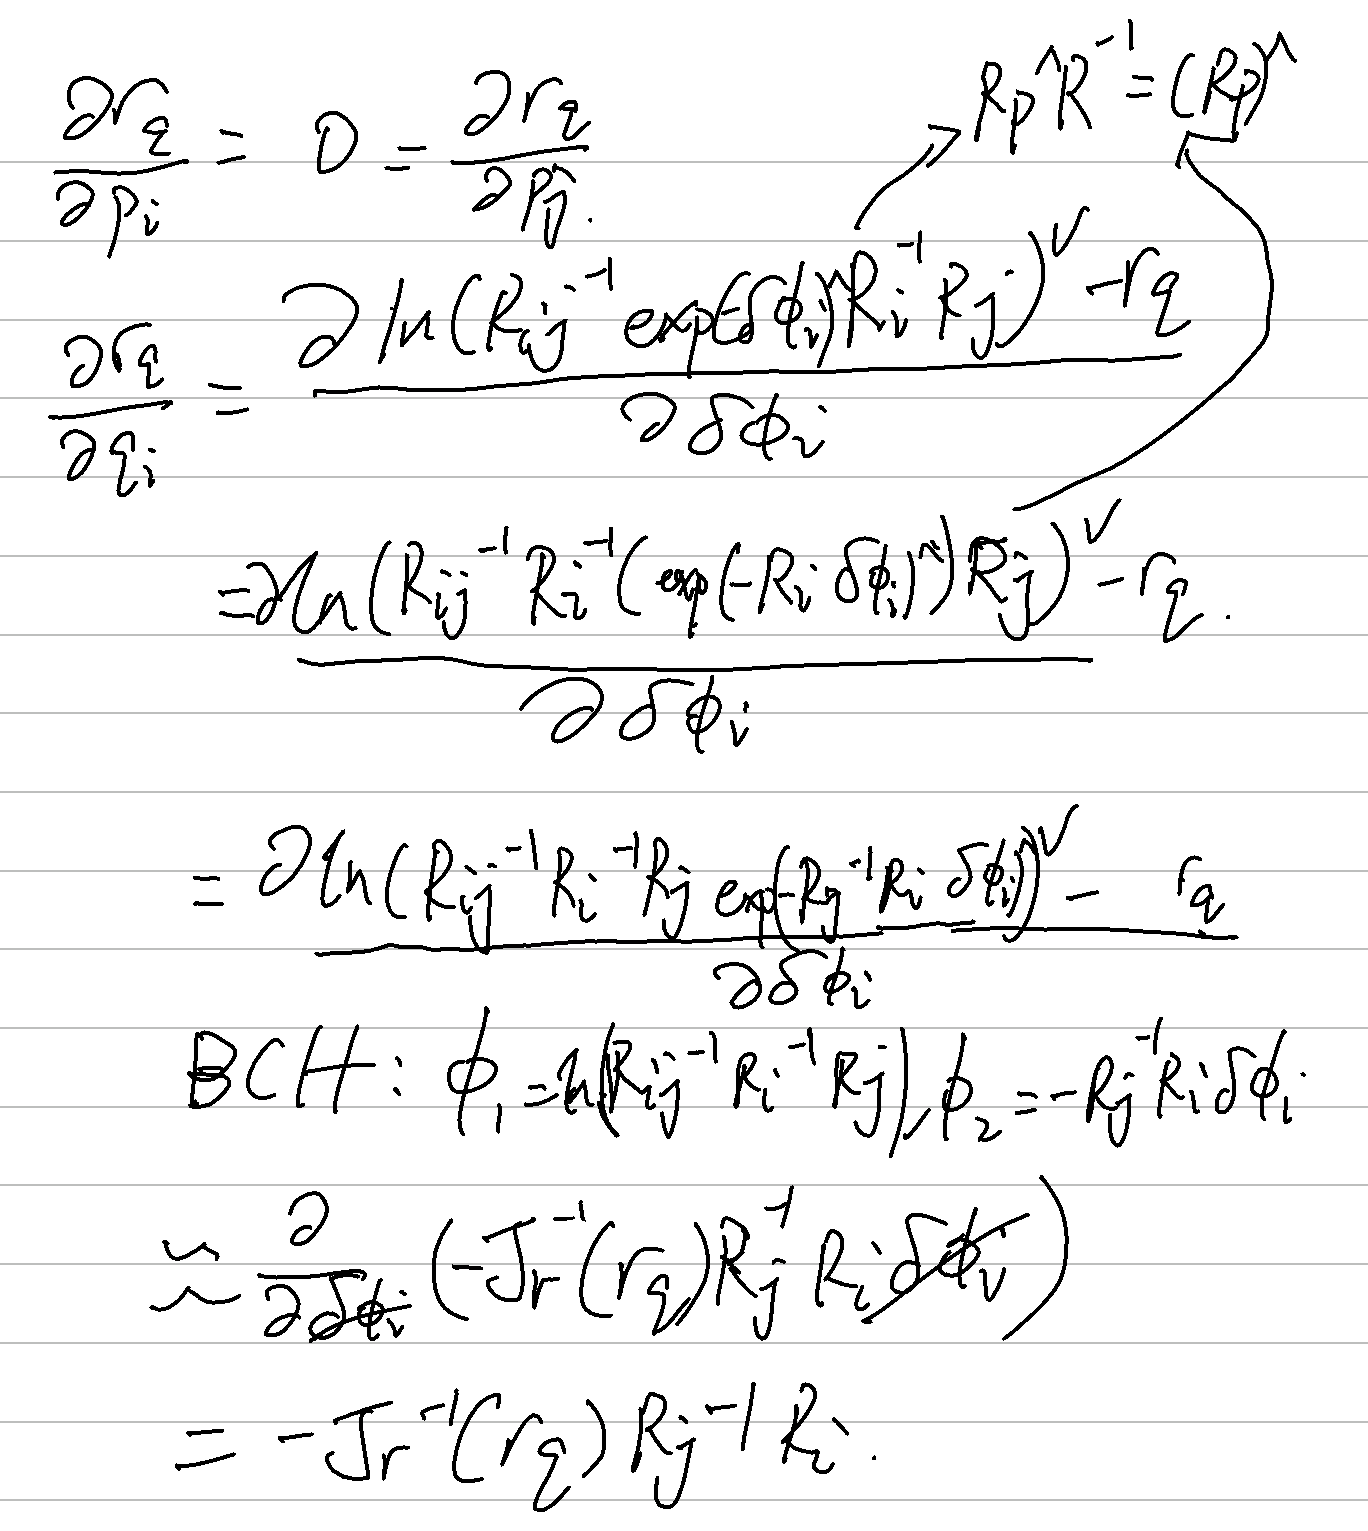 Rp^R⁻¹ = (Rp)^
∂r_q/∂p_i = 0 = ∂r_q/∂p_j.
∂r_q/∂q_i = ∂ln(R_ij⁻¹ exp(-δϕ_i)^ R_i⁻¹ R_j)^∨ - r_q / ∂δϕ_i
= ∂ln(R_ij⁻¹ R_i⁻¹ (exp(-R_i δϕ_i)^) R_j)^∨ - r_q. / ∂δϕ_i
= ∂ln(R_ij⁻¹ R_i⁻¹ R_j exp(-R_j⁻¹ R_i δϕ_i)^)^∨ - r_q / ∂δϕ_i
BCH: ϕ_1 = ln(R_ij⁻¹ R_i⁻¹ R_j), ϕ_2 = -R_j⁻¹ R_i δϕ_i
≈ ∂/∂δϕ_i (-J_r⁻¹(r_q) R_j⁻¹ R_i δϕ_i)
= -J_r⁻¹(r_q) R_j⁻¹ R_i.